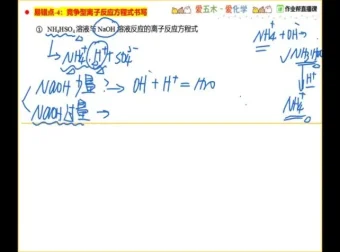 易错点-4:竞争型离子反应方程式书写
爱五木·爱化学
作业帮直播课
① NH₄HSO₄溶液与NaOH溶液反应的离子反应方程式
NH₄⁺ + OH⁻
↳ NH₄⁺ H⁺ + SO₄²⁻
↓ H⁺
NH₄⁺
NaOH少量?→ OH⁻ + H⁺ = H₂O
NaOH过量 →